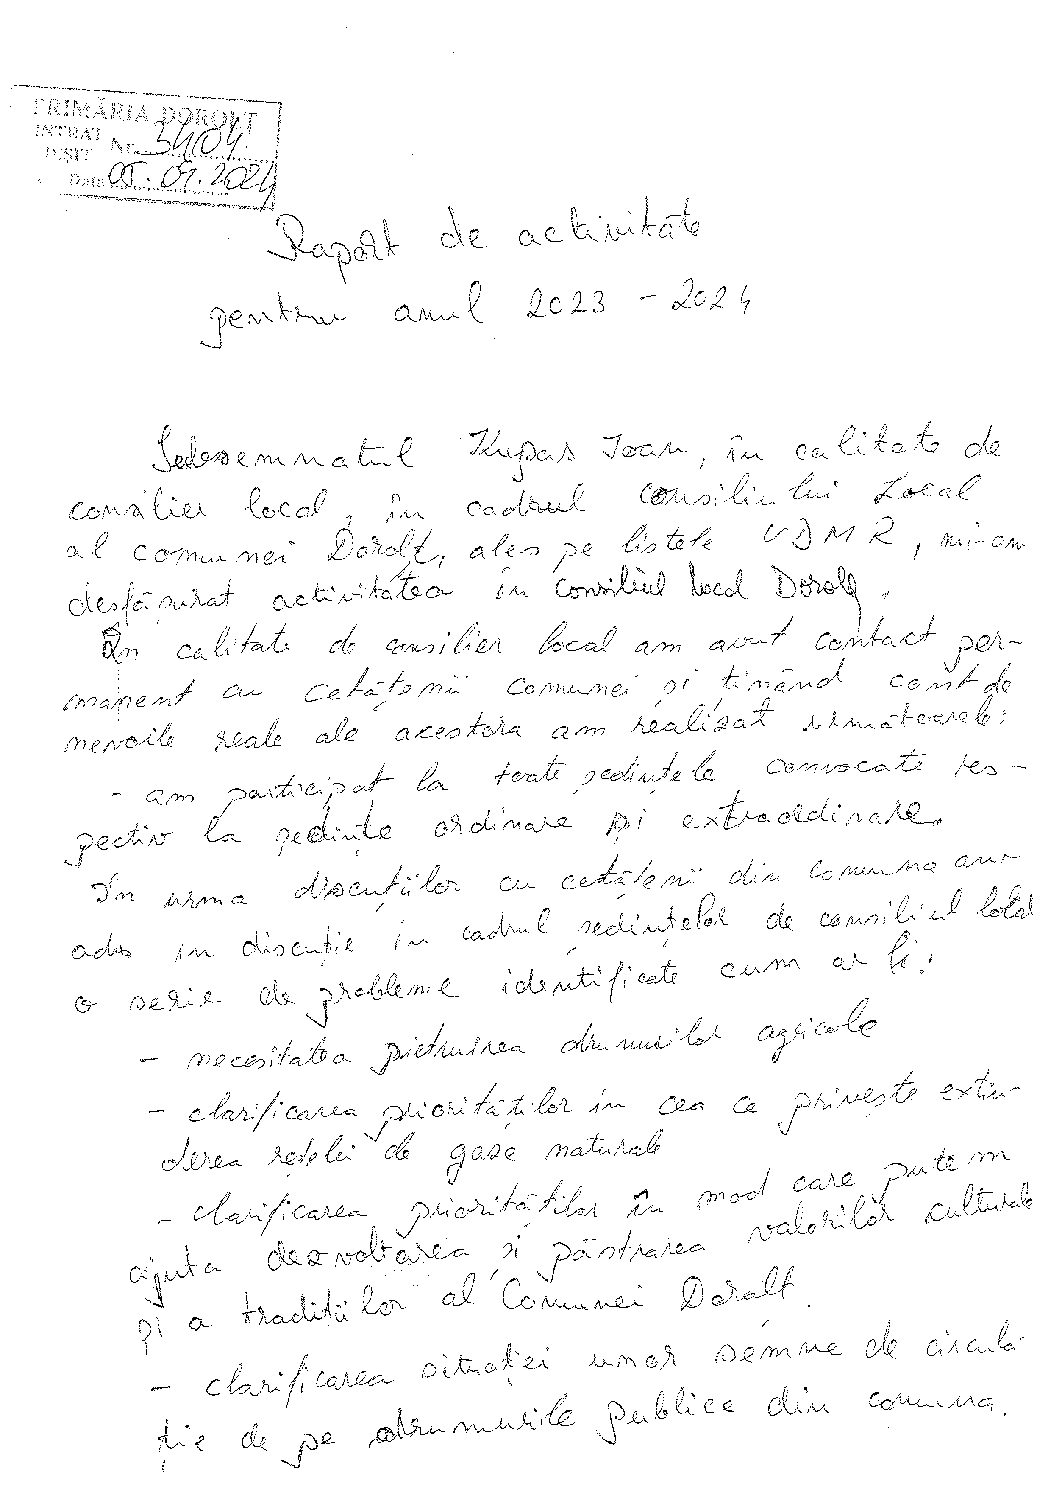 PRIMĂRIA DOROLȚ
INTRAT
IEȘIT Nr. 3404
Data 05.07.2024
Raport de activitate
pentru anul 2023 - 2024
Subsemnatul Kupas Ioan, în calitate de
consilier local, în cadrul consiliului Local
al comunei Dorolț, ales pe listele UDMR, mi-am
desfășurat activitatea în consiliul local Dorolț.
În calitate de consilier local am avut contact per-
manent cu cetățenii comunei și ținând cont de
nevoile reale ale acestora am realizat următoarele:
- am participat la toate ședințele convocate res-
pectiv la ședințe ordinare și extraordinare.
În urma discuțiilor cu cetățenii din comuna am
adus in discuție în cadrul ședințelor de consiliul local
o serie de probleme identificate cum ar fi:
- necesitatea pietruirea drumurilor agricole
- clarificarea priorităților in cea ce privește extin-
derea rețelei de gase naturale
- clarificarea priorităților în mod care putem
ajuta dezvoltarea și păstrarea valorilor culturale
și a tradițiilor al Comunei Dorolț.
- clarificarea situației unor semne de circula-
ție de pe drumurile publice din comuna.